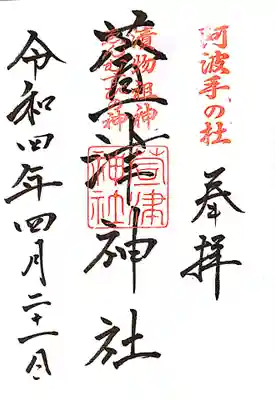 阿波手の杜
奉拝
漬物祖神
萱津神社
萱津神社
令和四年四月二十一日